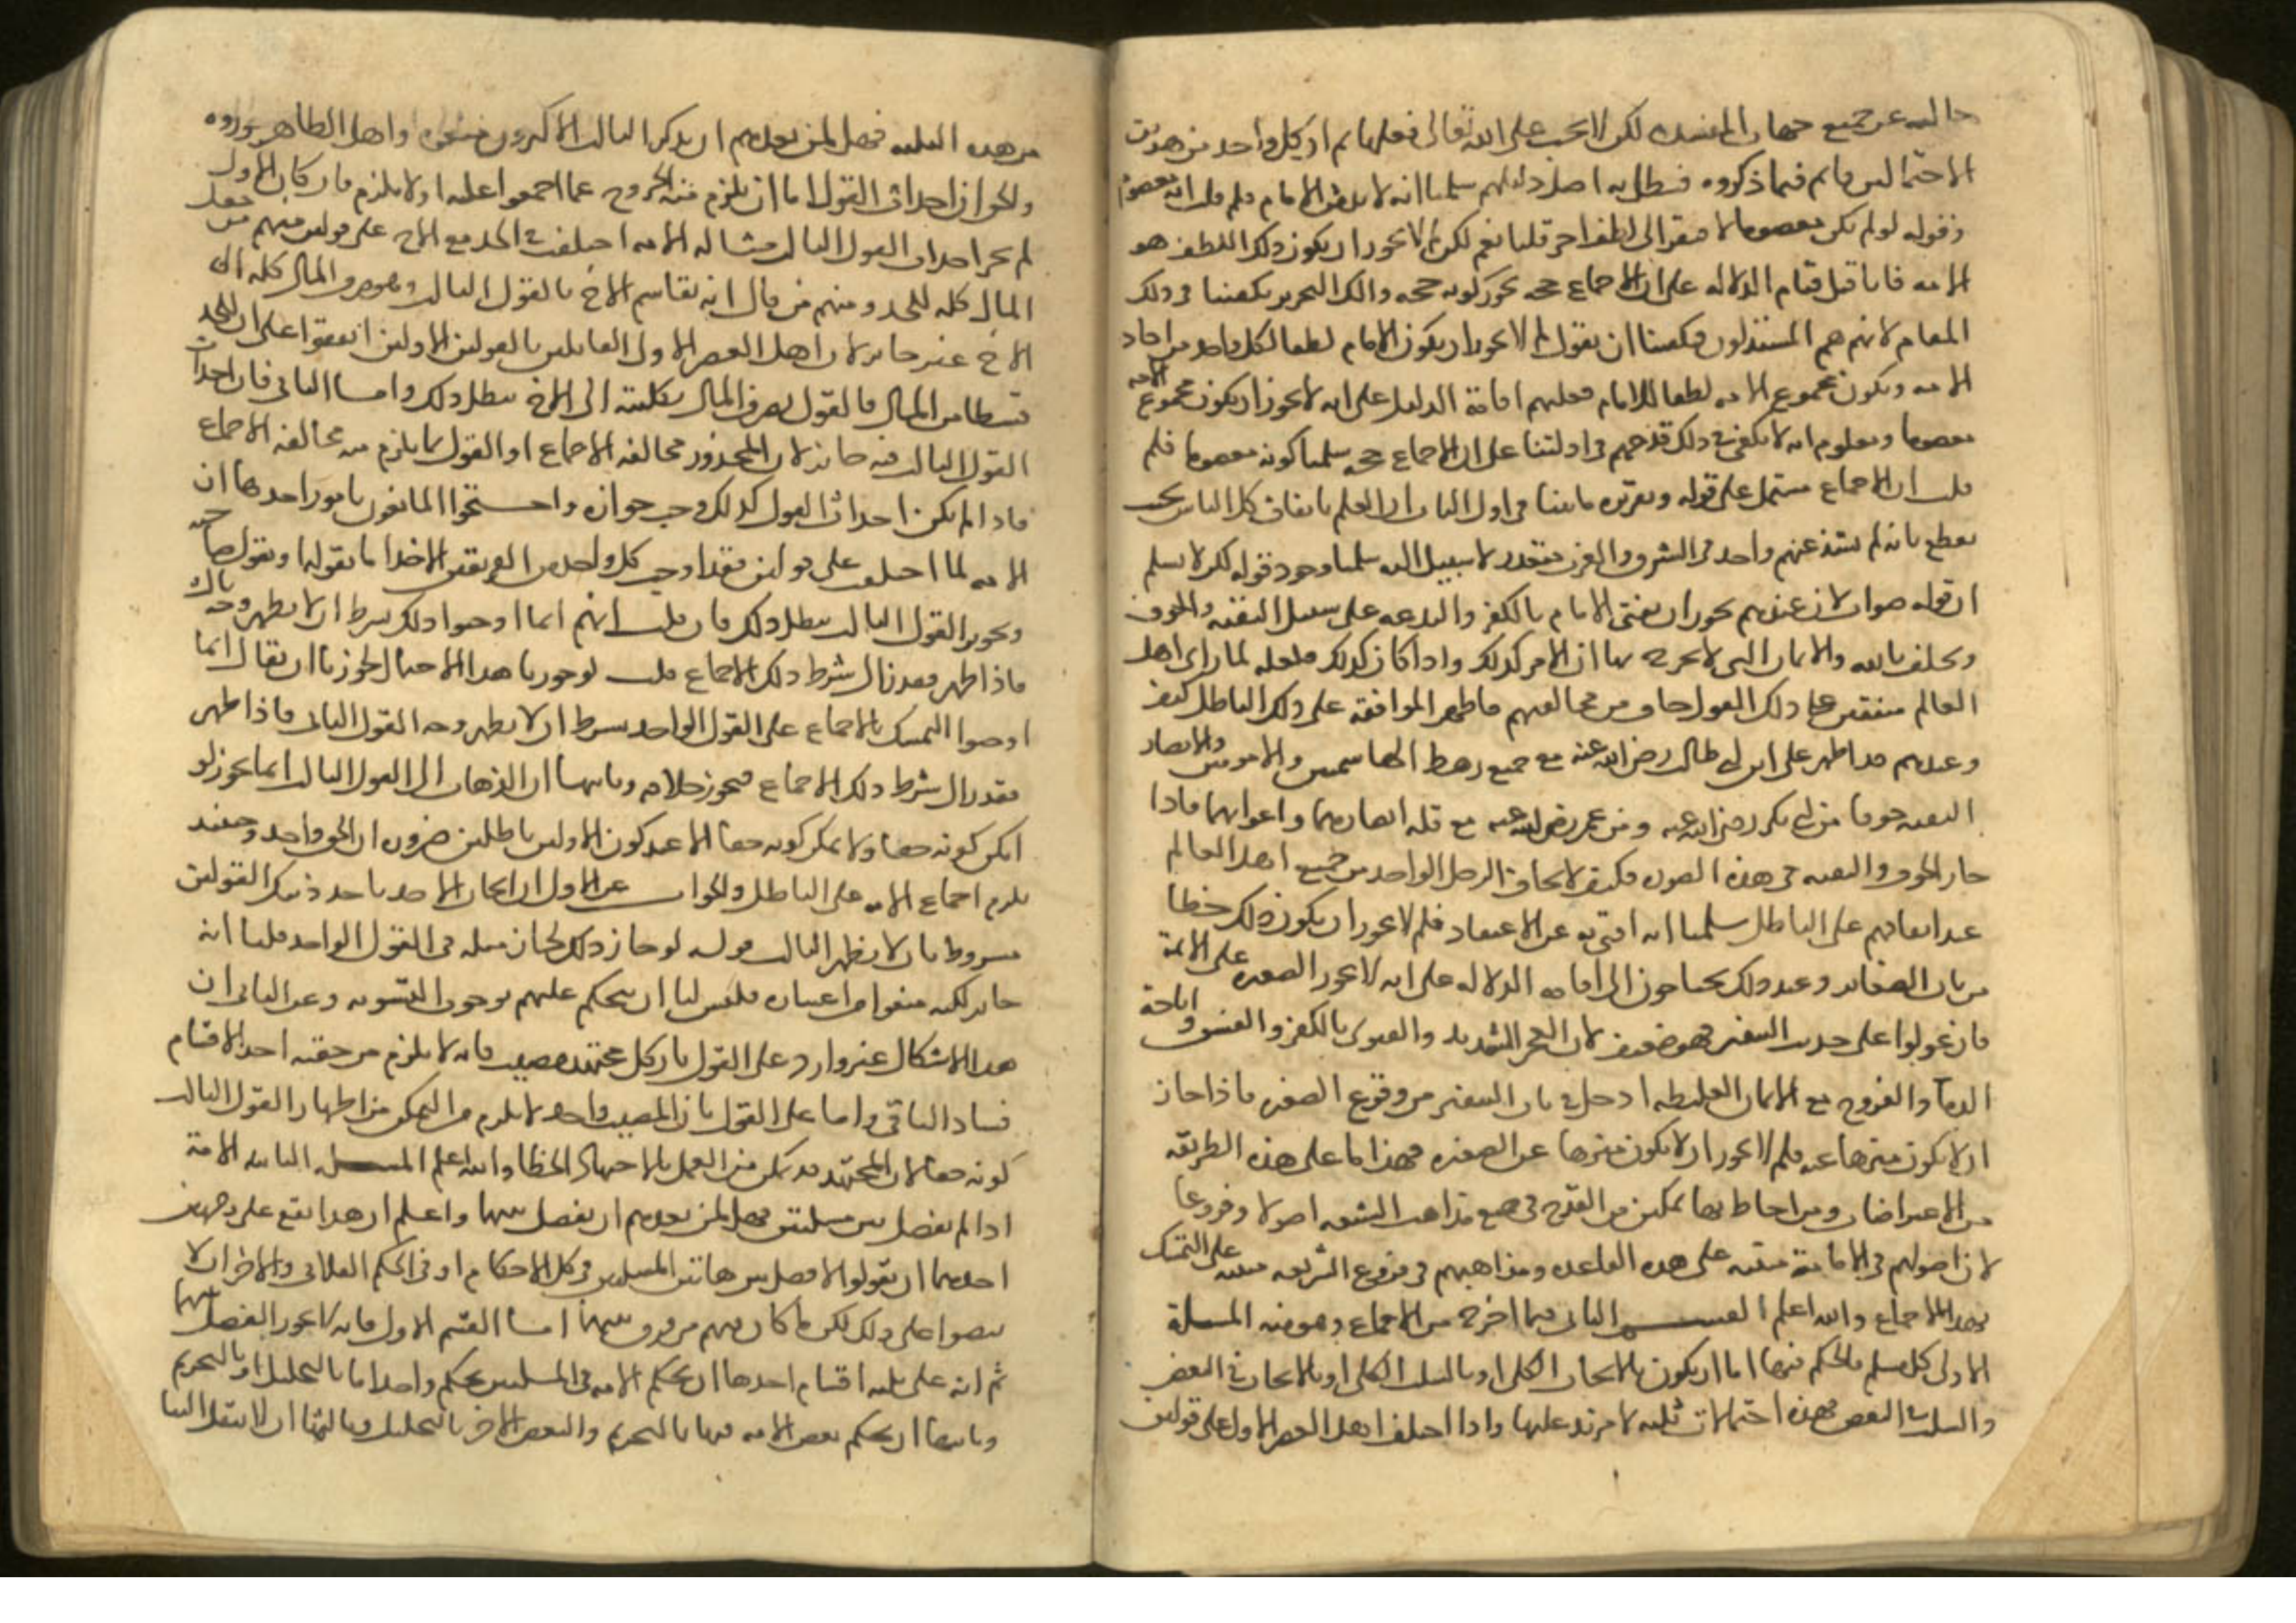 خالية عن جميع جهات المفسدة لكن لا يجب على الله تعالى فعلها ثم ان كل واحد من هذين
الاحتمالين قائم فيما ذكروه فبطل به اصل دليلهم سلمنا انه لا بد من الامام فلم قلت انه معصوم
وقوله لو لم يكن معصوما لافتقر الى لطف اخر قلنا نعم لكن لم لا يجوز ان يكون ذلك اللطف هو
الامة فانا قبل قيام الدلالة على ان الاجماع حجة نجوز كونه حجة وذلك التجويز يكفينا في ذلك
المقام لانهم هم المستدلون فيكفينا ان نقول لم لا يجوز ان يكون الامام لطفا لكل واحد من احاد
الامة ويكون مجموع الامة لطفا للامام فعليهم اقامة الدليل على انه لا يجوز ان يكون مجموع الامة
معصوما ومعلوم انه لا يكفي في ذلك قدحهم في ادلتنا على ان الاجماع حجة سلمنا كونه معصوما فلم
قلت ان الاجماع مشتمل على قوله وتقريره ما بينا في اول الباب ان العلم باتفاق كل الناس بحيث
يقطع بانه لم يشذ عنهم واحد في الشرق والغرب متعذر لا سبيل اليه سلمنا وجود قوله لكن لا نسلم
ان قوله صواب لان عندهم يجوز ان يفتي الامام بالكفر والبدعة على سبيل التقية والخوف
ويحلف بالله والايمان التي لا مخرج منها ان الامر كذلك واذا كان كذلك فلعله لما راى اهل
العالم متفقين على ذلك القول خاف من مخالفتهم فاظهر الموافقة على ذلك الباطل كيف
وعندهم قد اظهر علي ابن ابي طالب رضي الله عنه مع جميع رهط الهاشميين والامويين والانصار
التقية خوفا من ابي بكر رضي الله عنه ومن عمر رضي الله عنه مع قلة انصارهما واعوانهما فاذا
جاز الخوف والتقية في هذه الصورة فكيف لا يخاف الرجل الواحد من جميع اهل العالم
عند اتفاقهم على الباطل سلمنا انه افتى به عن الاعتقاد فلم لا يجوز ان يكون ذلك خطا
من باب الصغائر وعند ذلك يحتاجون الى اقامة الدلالة على انه لا يجوز الصغيرة على الائمة
فان عولوا على حديث التنفير فهو ضعيف لان العجز الشديد والفتوى بالكفر والفسق واباحة
الدماء والفروج مع الايمان الغليظة ادخل في باب التنفير من وقوع الصغيرة فاذا جاز
ان لا يكون منزها عنه فلم لا يجوز ان لا يكون منزها عن الصغيرة فهذا ما على هذه الطريقة
من الاعتراضات ومن احاط بها تمكن من القدح في جميع مذاهب الشيعة اصولا وفروعا
لان اصولهم في الامامة مبنية على هذه القاعدة ومذاهبهم في فروع الشريعة مبنية على التمسك
بهذا الاجماع والله اعلم القسم الثاني فيما اخرج من الاجماع وهو منه المسلة
الاولى كل مسلة فالحكم فيها اما ان يكون بالايجاب الكلي او بالسلب الكلي او بالايجاب في البعض
والسلب في البعض فهذه احتمالات ثلثة لا مزيد عليها واذا اختلف اهل العصر الاول على قولين
من هذه الثلثة فهل لمن بعدهم ان يذكر الثالث الاكثرون منعوه واهل الظاهر جوزوه
والحق ان احداث القول اما ان يلزم منه الخروج عما اجمعوا عليه او لا يلزم فان كان الاول
لم يجز احداث القول الثالث مثاله الامة اختلفت في الجد مع الاخ على قولين منهم من جعل
المال كله للجد ومنهم من قال انه يقاسم الاخ فالقول الثالث وهو صرف المال كله الى
الاخ غير جائز لان اهل العصر الاول القائلين بالقولين الاولين اتفقوا على ان للجد
قسطا من المال فالقول بصرف المال بكليته الى الاخ يبطل ذلك واما الثاني فان احداث
القول الثالث فيه جائز لان المحذور مخالفة الاجماع او القول بما يلزم منه مخالفة الاجماع
فاذا لم يكن احداث القول كذلك وجب جوازه واحتجوا المانعون بامور احدها ان
الامة لما اختلفت على قولين فقد اوجب كل واحد من الفريقين الاخذ اما بقوله او بقول صاحبه
وتجويز القول الثالث يبطل ذلك فان قلت انهم انما اوجبوا ذلك بشرط ان لا يظهر وجه ثالث
فاذا ظهر فقد زال شرط ذلك الاجماع قلت لو جوزنا هذا الاحتمال لجوزنا ان يقال انما
اوجبوا التمسك بالاجماع على القول الواحد بشرط ان لا يظهر وجه القول الثاني فاذا ظهر
فقد زال شرط ذلك الاجماع فيجوز خلافه وثانيها ان الذهاب الى القول الثالث انما يجوز لو
امكن كونه حقا ولا يمكن كونه حقا الا عند كون الاولين باطلين ضرورة ان الحق واحد وحينئذ
يلزم اجماع الامة على الباطل والجواب عن الاول ان ايجاب الاخذ باحد ذينك القولين
مشروط بان لا يظهر الثالث قوله لو جاز ذلك لجاز مثله في القول الواحد قلنا انه
جائز لكنه منعوا من اعتباره فليس لنا ان نحكم عليهم بوجوب التسوية وعن الثاني ان
هذا الاشكال غير وارد على القول بان كل مجتهد مصيب فانه لا يلزم من حقية احد الاقسام
فساد الباقي واما على القول بان المصيب واحد لا يلزم من التمكن من اظهار القول الثالث
كونه حقا لان المجتهد قد يمكن من العمل بالاجتهاد الخطا والله اعلم المسلة الثانية الامة
اذا لم يفصل بين مسلتين فهل لمن بعدهم ان يفصل بينهما واعلم ان هذا يقع على وجهين
احدهما ان يقولوا لا فصل بين هاتين المسلتين في كل الاحكام او في الحكم الفلاني والاخر ان لا
ينصوا على ذلك لكن ما كان فيهم من فرق بينهما اما القسم الاول فانه لا يجوز الفصل بينهما
ثم انه على ثلثة اقسام احدها ان يحكم الامة في المسلتين بحكم واحد اما بالتحليل او بالتحريم
وثانيها ان يحكم بعض الامة فيها بالتحريم والبعض الاخر بالتحليل وثالثها ان لا ينقل الينا